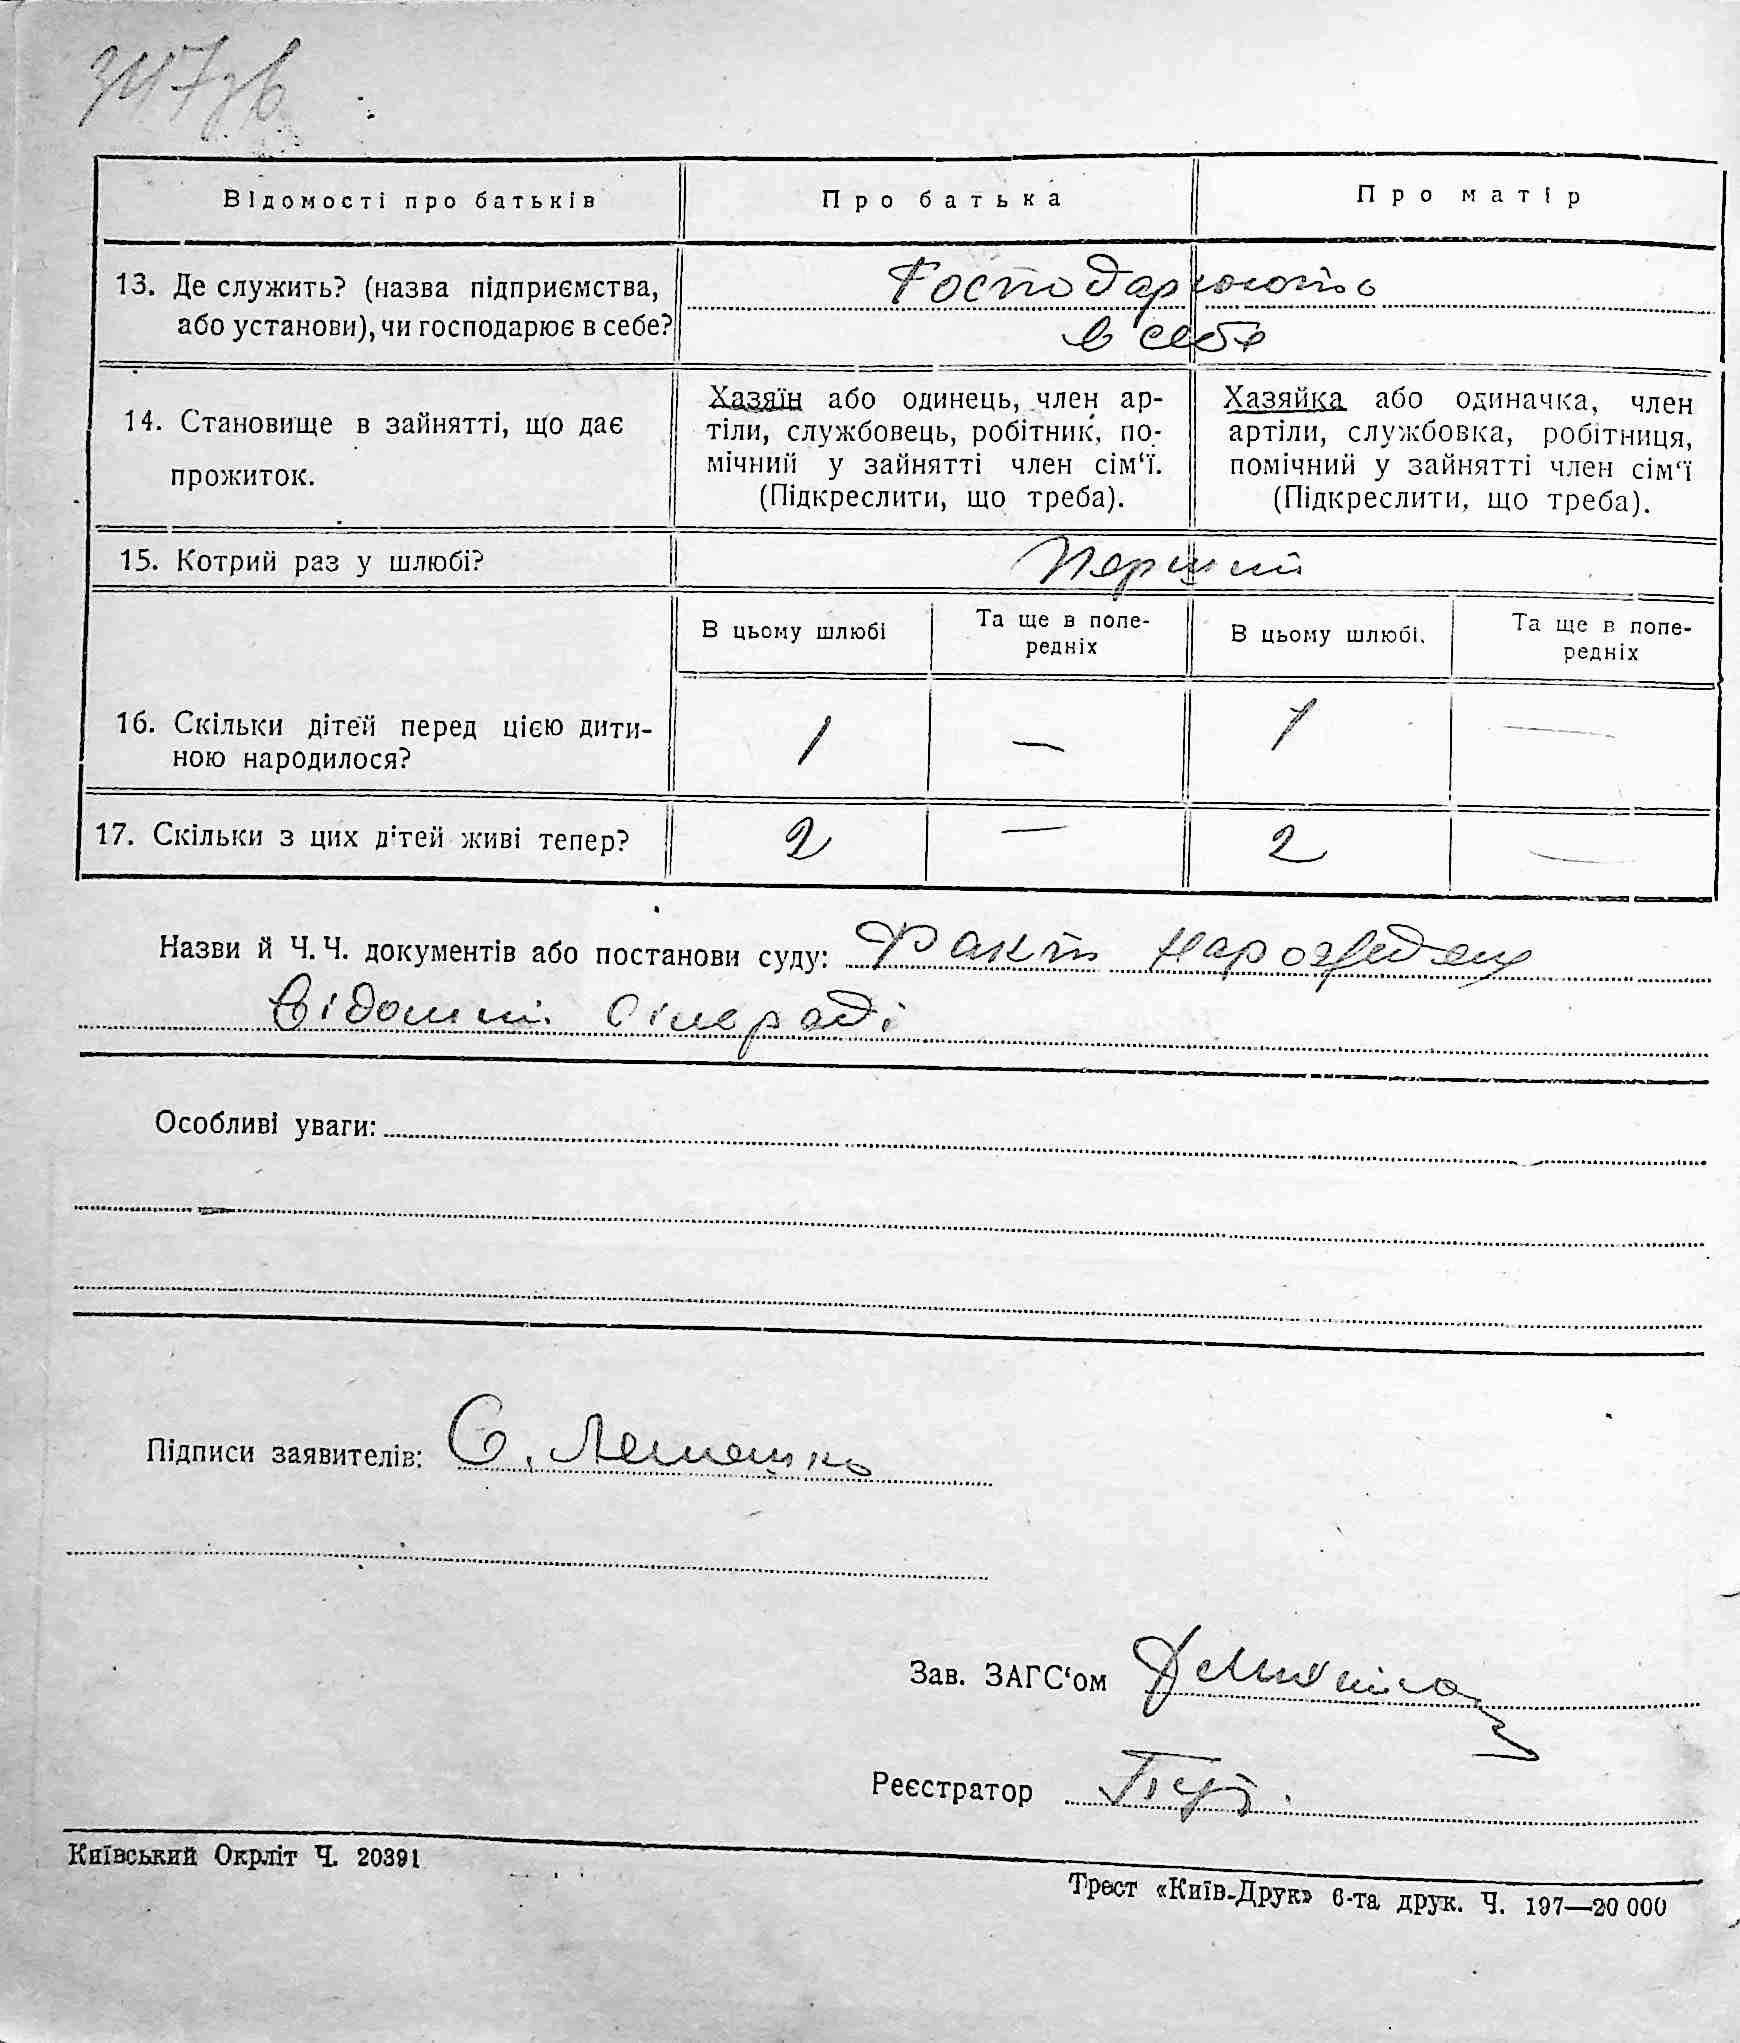 347зв
Відомості про батьків
Про батька
Про матір
13. Де служить? (назва підприємства,
або установи), чи господарює в себе?
Господарюють
в себе
14. Становище в зайнятті, що дає
прожиток.
Хазяїн або одинець, член ар-
тіли, службовець, робітник, по-
мічний у зайнятті член сім‘ї.
(Підкреслити, що треба).
Хазяйка або одиначка, член
артіли, службовка, робітниця,
помічний у зайнятті член сім‘ї
(Підкреслити, що треба).
15. Котрий раз у шлюбі?
Перший
В цьому шлюбі
Та ще в попе-
редніх
В цьому шлюбі.
Та ще в попе-
редніх
16. Скільки дітей перед цією дити-
ною народилося?
1
—
1
—
17. Скільки з цих дітей живі тепер?
2
—
2
—
Назви й Ч. Ч. документів або постанови суду: Факт народження
відомий сільраді
Особливі уваги:
Підписи заявителів: С. Лемешко
Зав. ЗАГС‘ом
Реєстратор
Київський Окрліт Ч. 20391
Трест «Київ-Друк» 6-та друк. Ч. 197—20 000